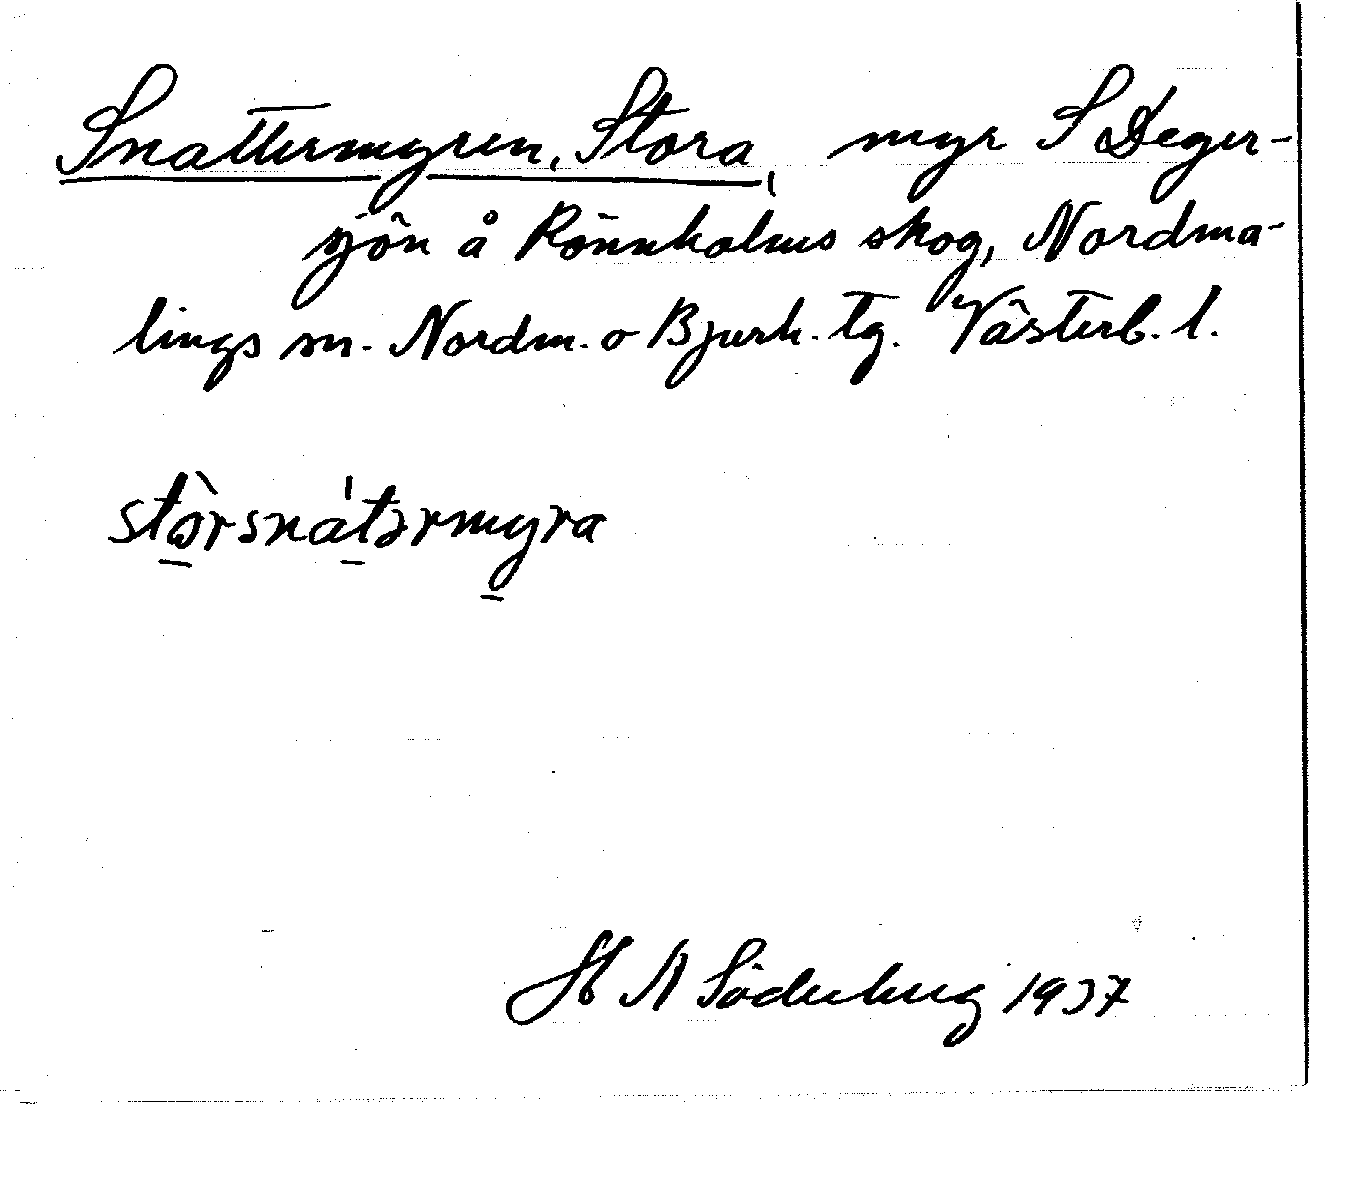 Snattermyren, Stora, myr S Deger-
sjön å Rönnholms skog, Nordma-
lings sn. Nordm. o Bjurh. tg. Västerb. l.
stòrsnátərmyra
H A Söderberg 1937